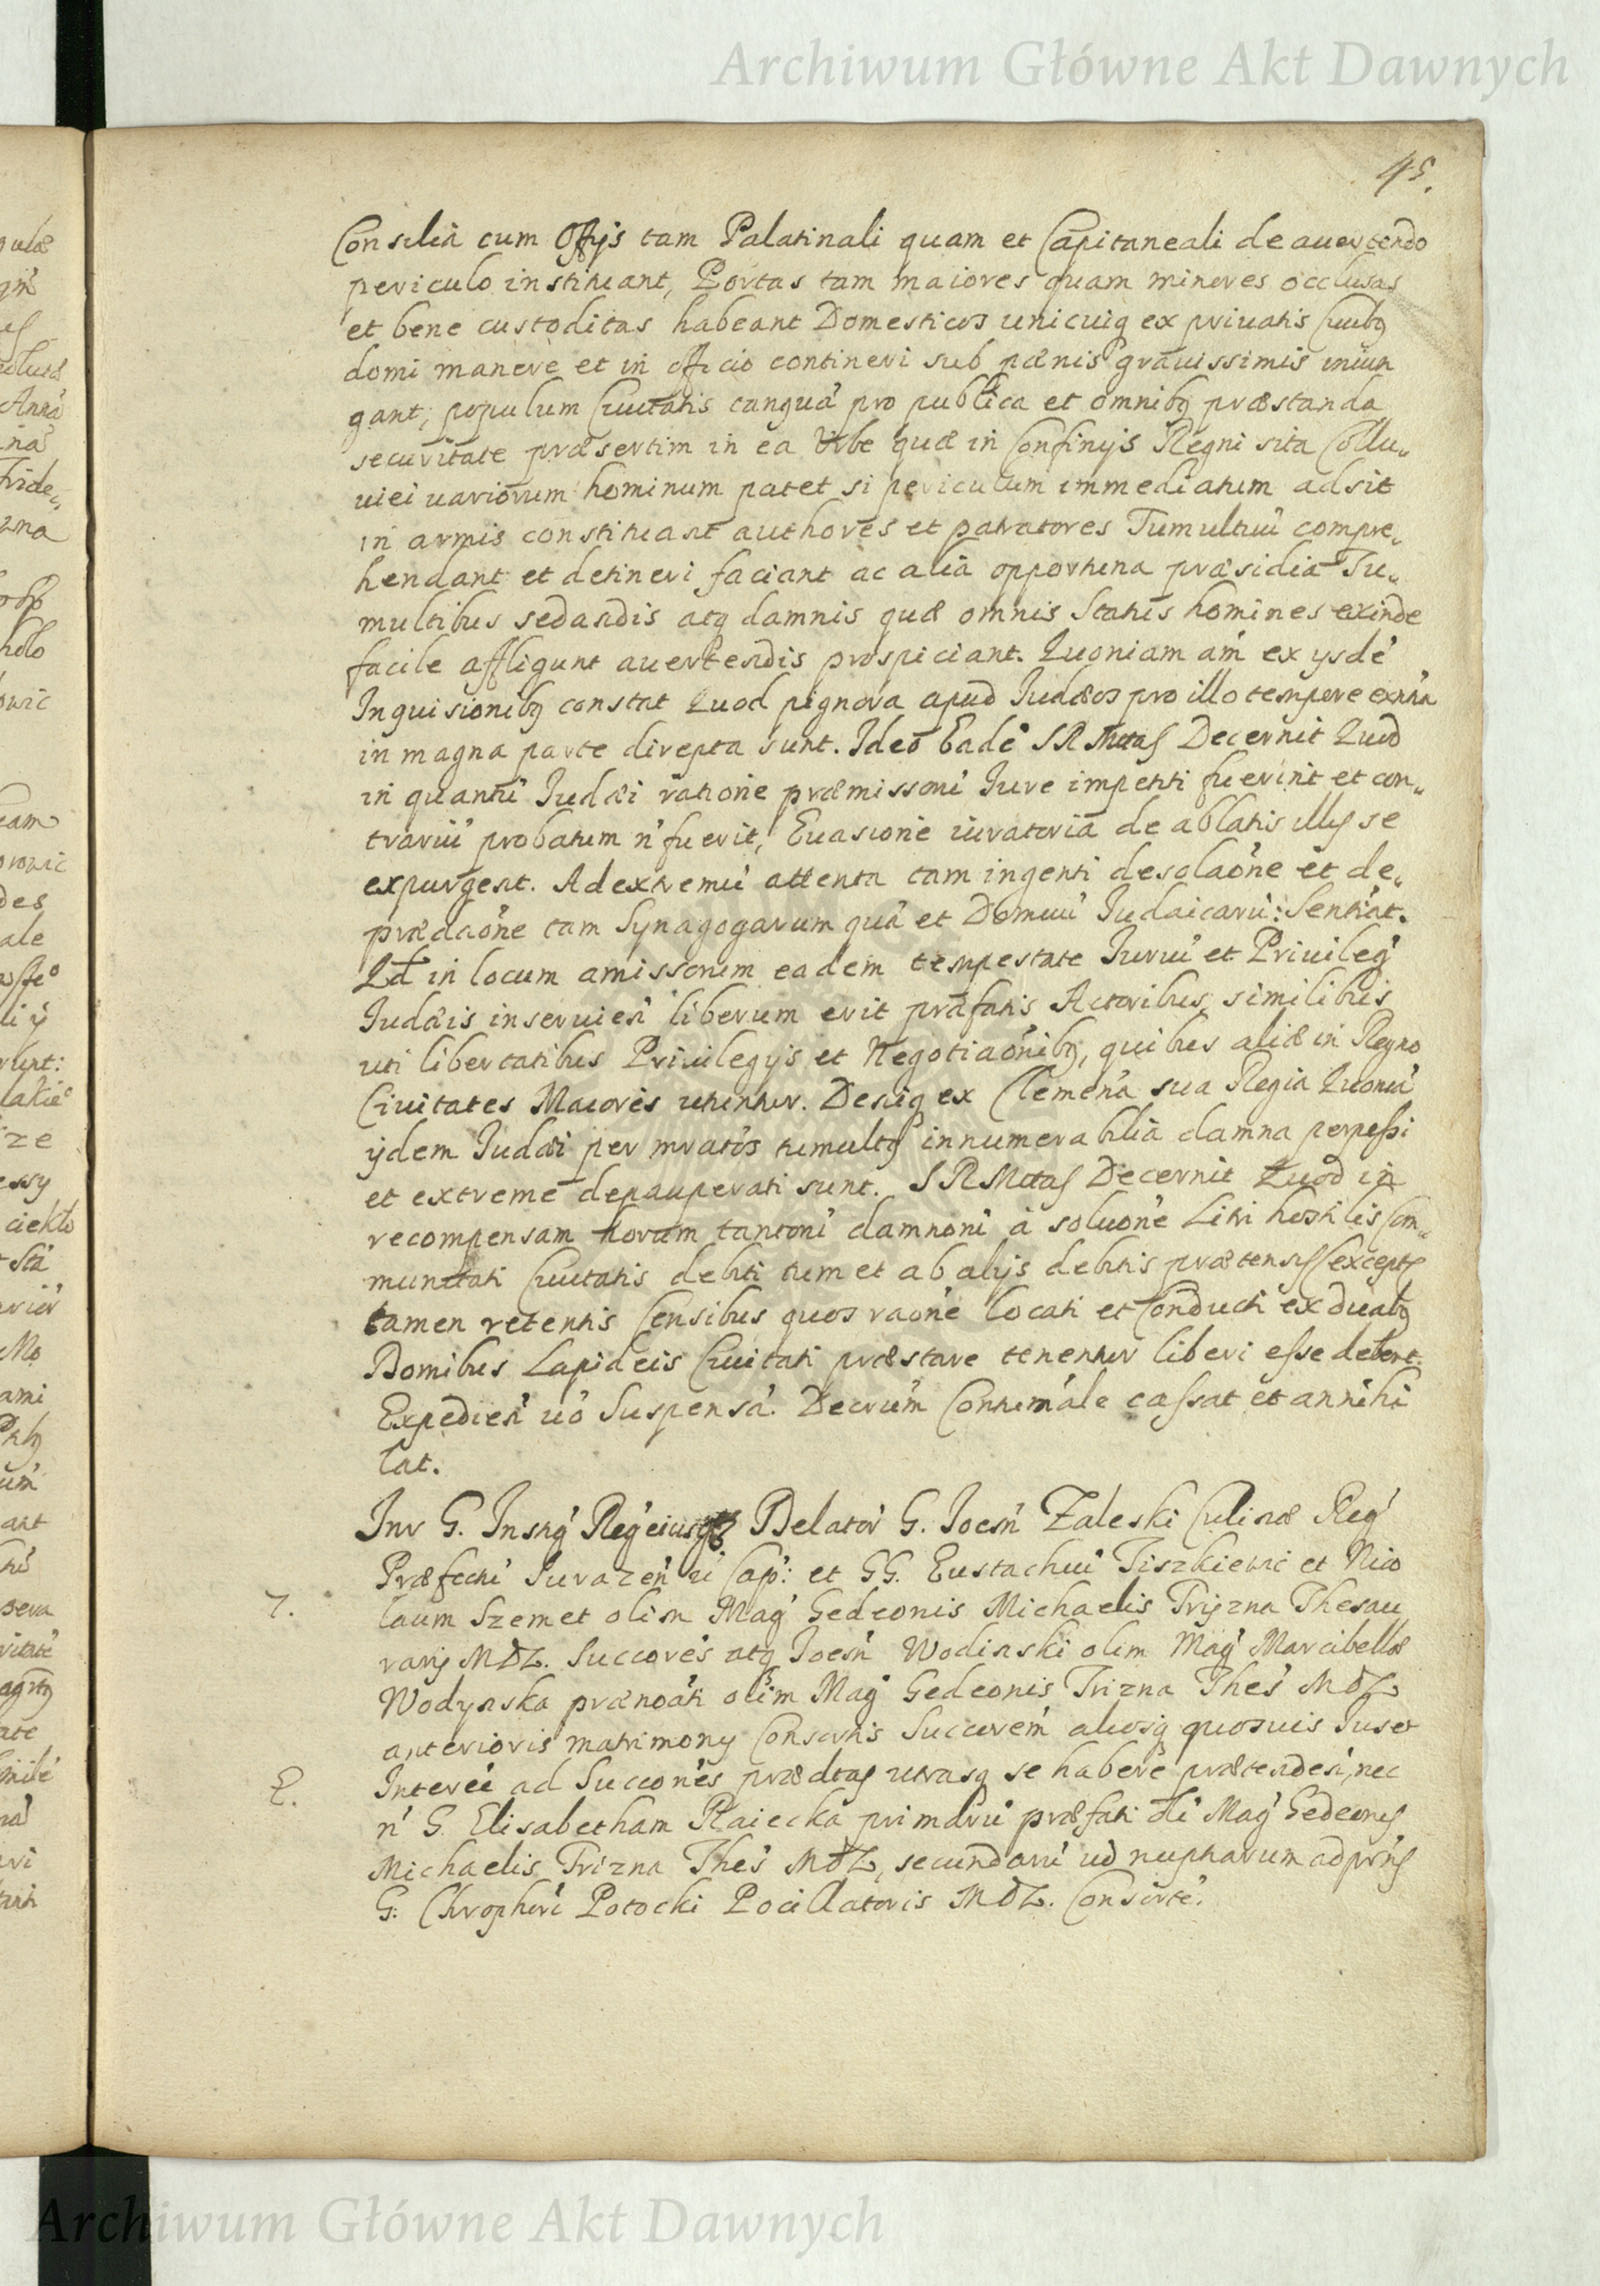 Archiwum Główne Akt Dawnych
45.
Consilia cum Offijs tam Palatinali quam et Capitaneali de auertendo
periculo instituant, Portas tam maiores quam minores occlusas
et bene custoditas habeant Domesticos unicuiq ex priuatis Ciuibq
domi manere et in officio contineri sub pænis grauissimis iniun
gant, populum Ciuitatis tanquá pro publica et omnibq præstanda
securitate præsertim in ea Urbe quæ in Confinijs Regni sita Collu„
uiei uariorum hominum patet si periculum immediatum adsit
in armis constituant authores et patratores Tumultuú compre„
hendant et detineri faciant ac alia opportuna præsidia Tu„
multibus sedandis atq damnis quæ omnis Status homines exinde
facile affligunt auertendis prospiciant. Quoniam aḿ ex ysdé
Inquisionibq constat Quod pignora apud Iudæos pro illo tempore exńa
in magna parte direpta sunt. Ideo Eadé S R Mttas Decernit Quod
in quantú Iudæi ratione præmissoń Iure impetiti fuerint et con„
trariú probatum ń fuerit, Euasione iuratoria de ablatis illis se
expurgent. Ad extremú attenta tam ingenti desolaóne et de„
prædaóne tam Synagogarum quá et Domuú Iudaicarú: Sentiát.
Qd in locum amissorum eadem tempestate Iuriú et Priuileǵ
Iudæis inseruień liberum erit præfatis Actoribus similibus
uti libertatibus Priuilegijs et Negotiaónibq, quibus aliæ in Regno
Ciuitates Maiores utuntur. Deniq ex Clemeńa sua Regia Quoniá
ijdem Iudæi per mratos tumultq innumerabilia damna perpessi
et extreme depauperati sunt. S R Mttas Decernit Quod in
recompensam horum tantoń damnoń à soluóne Litri hostilis Com„
munitati Ciuitatis debiti tum et ab alijs debitis prætensis (exceptis
tamen retentis Censibus quos raóne locati et Conducti ex duabq
Domibus Lapideis Ciuitati præstare tenentur liberi esse debent.
Expedień uó Suspensá. Decrúm Contumále cassat et annihi
lat.
Inr G. Insty Reǵ eiusq Delatoŕ G. Ioeśń Zaleski Culinæ Reǵ
Præfecti Iurazeń Cap: et GG. Eustachiú Tiszkiewic et Nico
7. laum Szemet olim Maǵ Gedeonis Michaelis Tryzna Thesau
rarij MDL. Succorés atq Ioeśń Wodinski olim Maǵ Marcibellæ
Wodynska prænoáti olim Maǵ Gedeonis Trizna Theś MDL
anterioris matrimony Consortis Successorem aliosq quosuis Ius et
2. Interée ad Succonés prædtas utrasq se habere prætendeń, nec
ń G. Elisabetham Raiecka primariú præfati oĺi Maǵ Gedeonis
Michaelis Trizna Theś MDL, secundarú uó nuptiarum ad prńs
G: Chrophori Potocki Pocillatoris MDL. Consorté.
Archiwum Główne Akt Dawnych